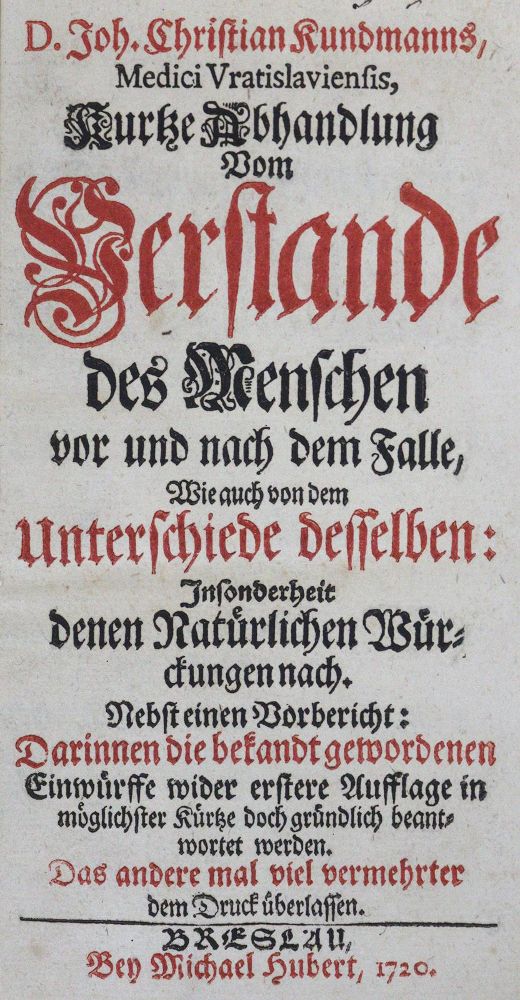 D. Joh. Christian Kundmanns,
Medici Vratislaviensis,
Kurtze Abhandlung
Vom
Verstande
des Menschen
vor und nach dem Falle,
Wie auch von dem
Unterschiede desselben:
Insonderheit
denen Natürlichen Wür-
ckungen nach.
Nebst einen Vorbericht:
Darinnen die bekandt gewordenen
Einwürffe wider erstere Aufflage in
möglichster Kürtze doch gründlich beant-
wortet werden.
Das andere mal viel vermehrter
dem Druck überlassen.
BRESLAU,
Bey Michael Hubert, 1720.